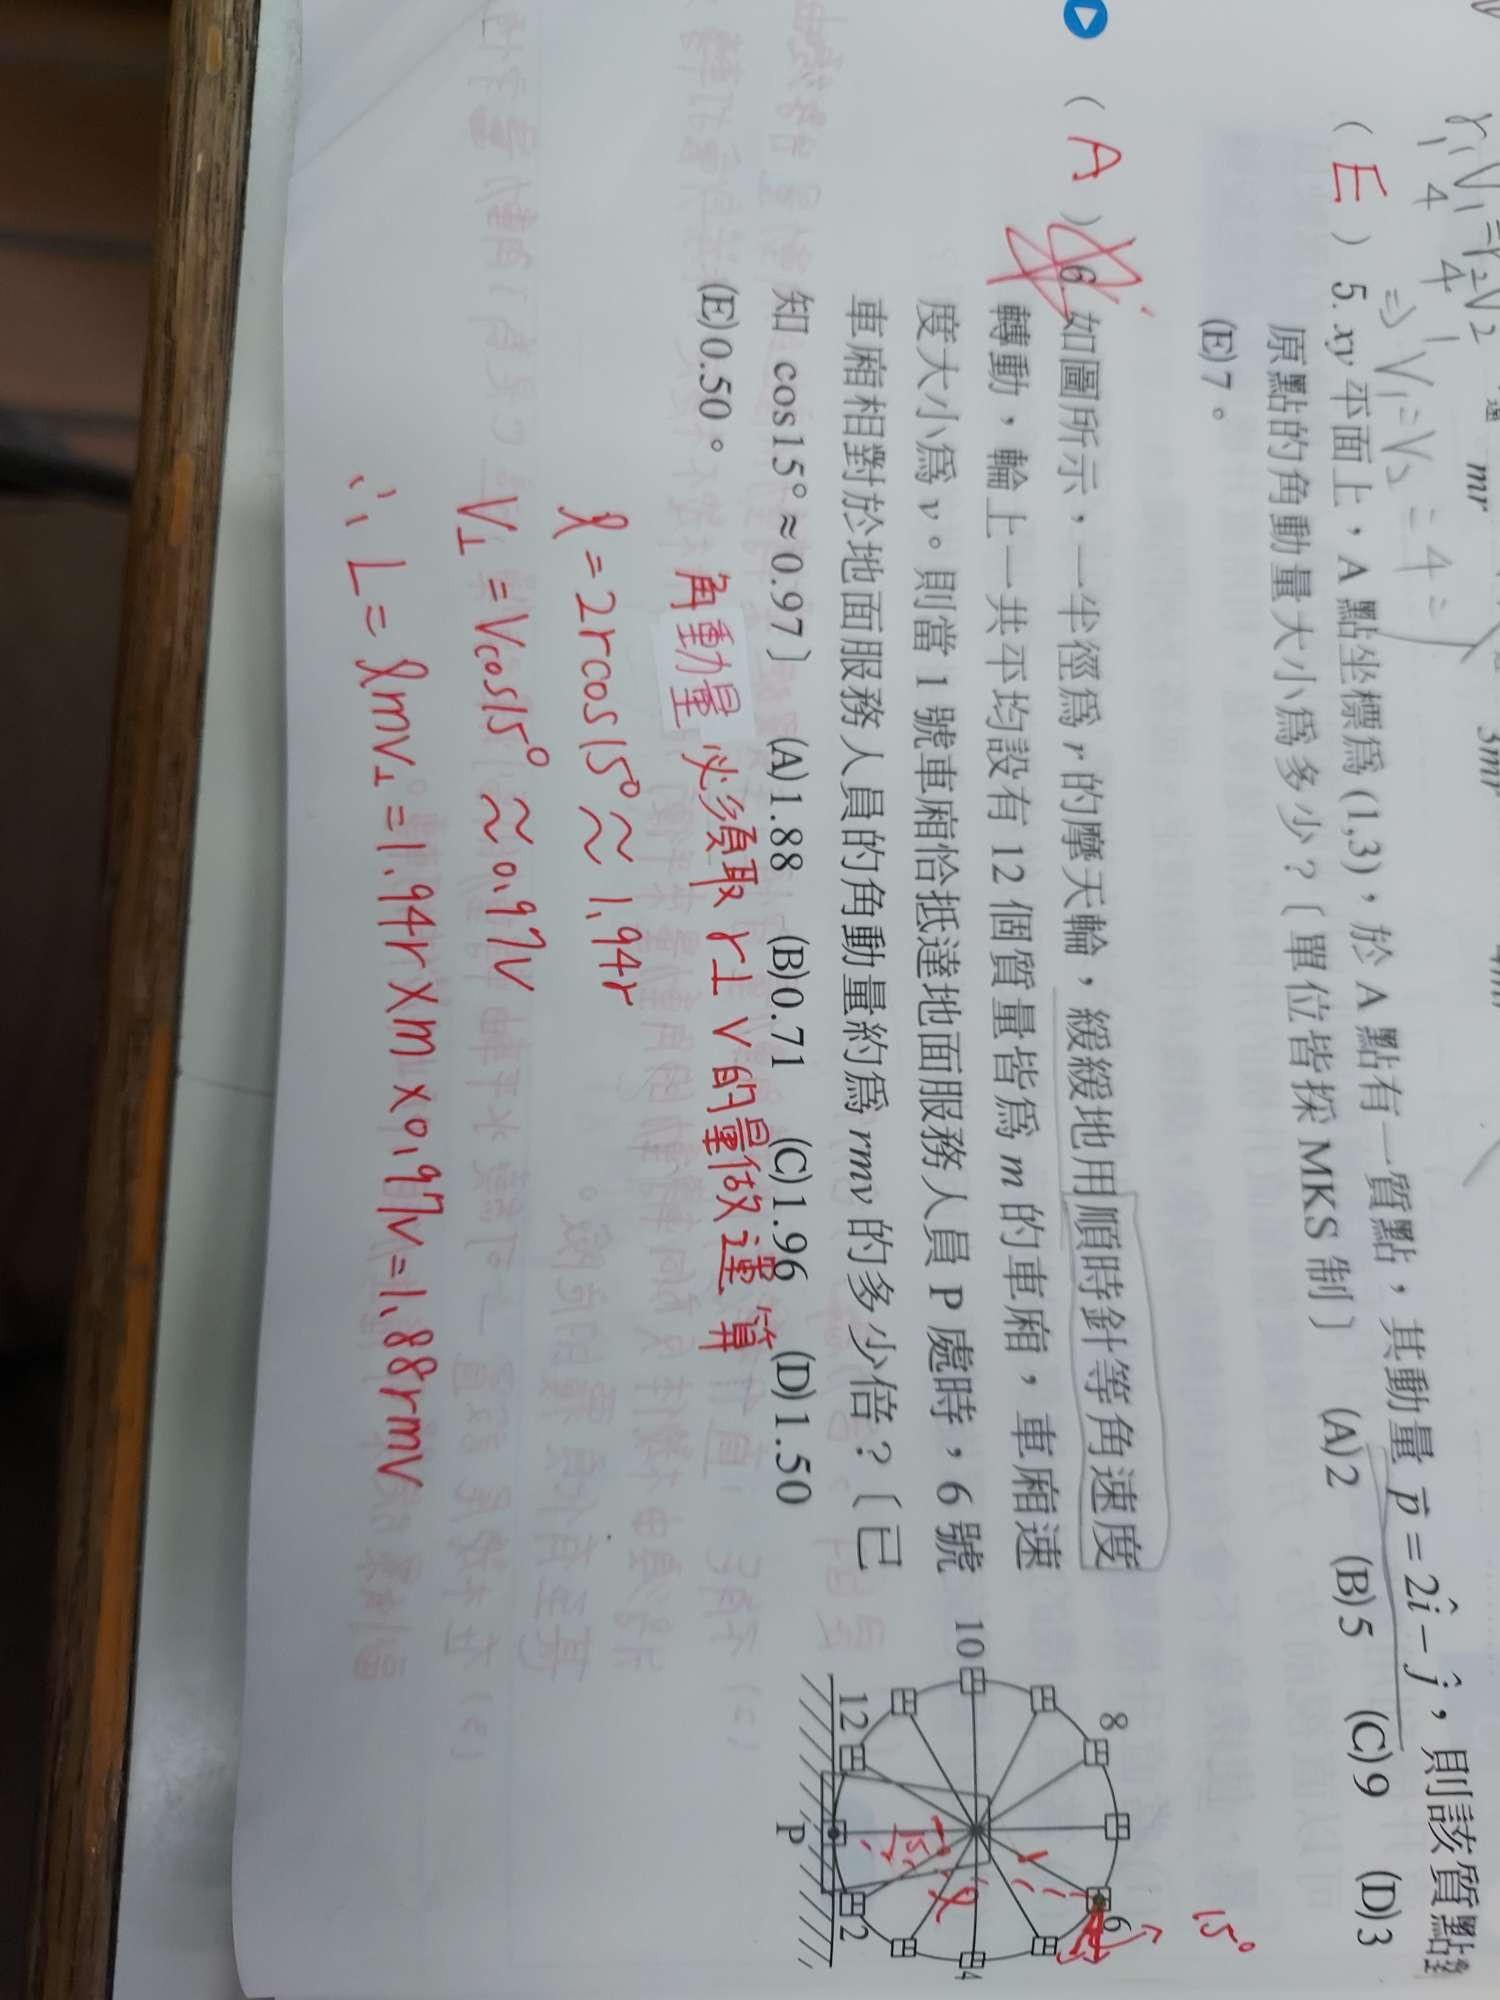 r₁V₁=r₂V₂
1 4 4 1
⇒ V₁=V₂ = 4 =
mr
3mr
( E ) 5. xy 平面上，A 點坐標為 (1,3)，於 A 點有一質點，其動量 p⃗ = 2î − ĵ，則該質點對
原點的角動量大小為多少？〔單位皆採 MKS 制〕 (A)2 (B)5 (C)9 (D)3
(E)7。
( A ) 6. 如圖所示，一半徑為 r 的摩天輪，緩緩地用順時針等角速度
轉動，輪上一共平均設有 12 個質量皆為 m 的車廂，車廂速
度大小為 v。則當 1 號車廂恰抵達地面服務人員 P 處時，6 號
車廂相對於地面服務人員的角動量約為 rmv 的多少倍？〔已
知 cos15°≈0.97〕 (A)1.88 (B)0.71 (C)1.96 (D)1.50
(E)0.50。
角動量必須取 r⊥v 的量做運算
ℓ = 2rcos15° ≈ 1.94r
V⊥ = Vcos15° ≈ 0.97v
∴ L = ℓmv⊥ = 1.94r × m × 0.97v = 1.88rmv
15°
8
6
10
4
12
2
P
r
15°
ℓ